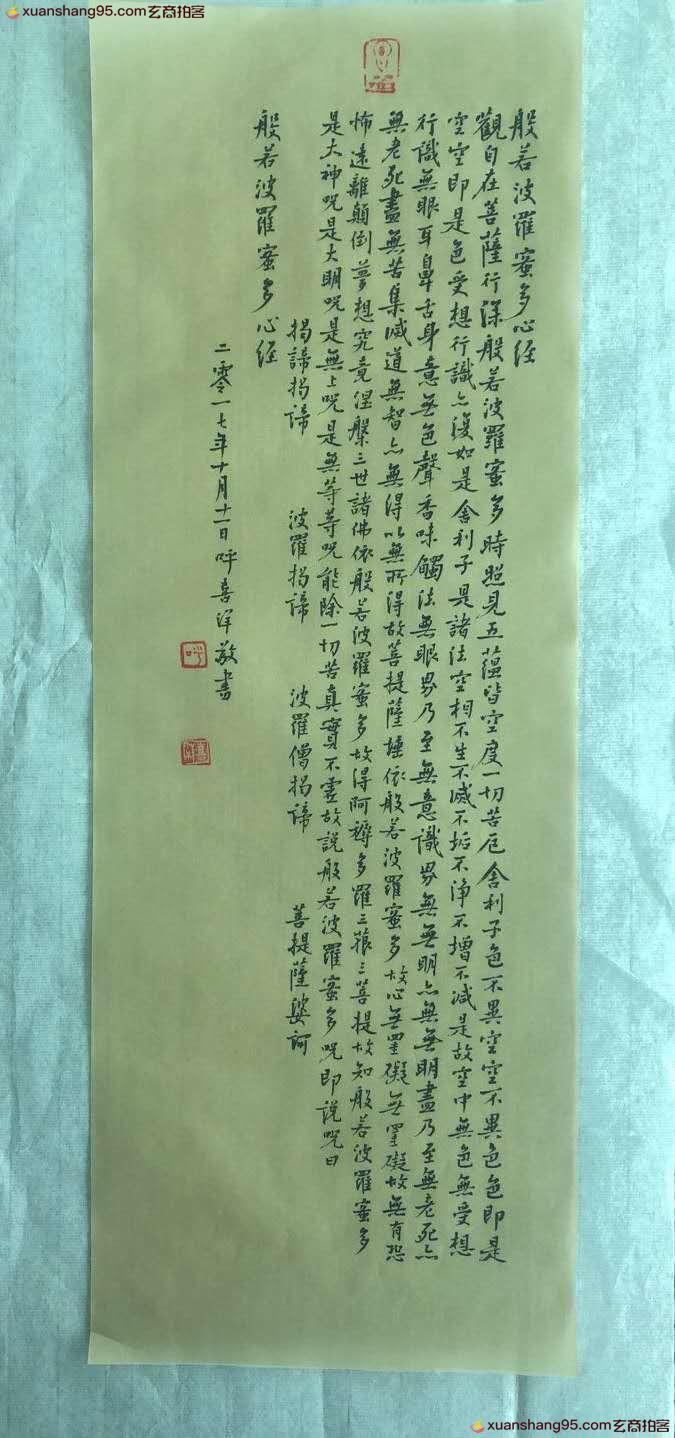 xuanshang95.com玄商拍客
xuanshang95.com玄商拍客
般若波羅蜜多心经
觀自在菩薩行深般若波羅蜜多時照見五蕴皆空度一切苦厄舍利子色不異空空不異色色即是
空空即是色受想行識亦復如是舍利子是諸法空相不生不滅不垢不净不增不减是故空中無色無受想
行識無眼耳鼻舌身意无色聲香味觸法無眼界乃至無意識界無無明亦無無明盡乃至無老死亦
無老死盡無苦集滅道無智亦無得以無所得故菩提薩埵依般若波羅蜜多故心无罣礙无罣礙故無有恐
怖遠離顛倒夢想究竟涅槃三世諸佛依般若波羅蜜多故得阿耨多羅三藐三菩提故知般若波羅蜜多
是大神咒是大明咒是無上咒是無等等咒能除一切苦真實不虚故説般若波羅蜜多咒即説咒曰
揭諦揭諦 波羅揭諦 波羅僧揭諦 菩提薩婆訶
般若波羅蜜多心经
二零一七年十月十一日呼喜洋敬書
呼
xuanshang95.com玄商拍客